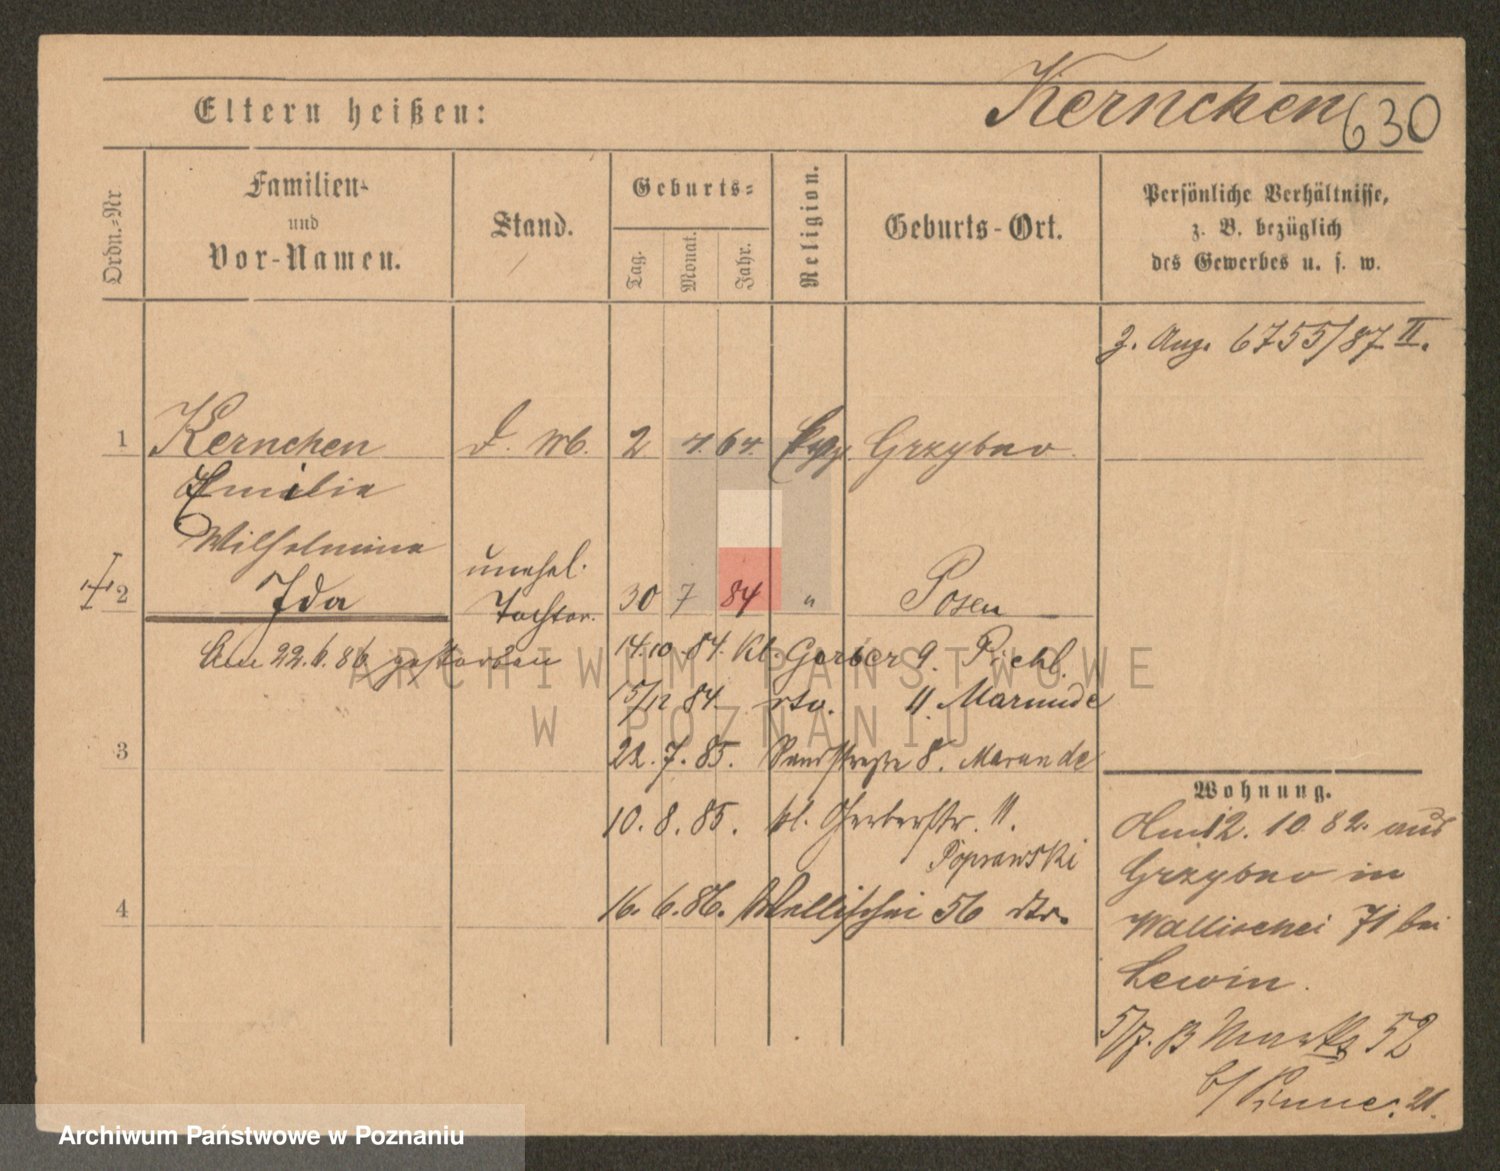 Eltern heißen:
Kernchen 630
Ordn.-Nr
Familien-
und
Vor-Namen.
Stand.
Geburts-
Tag.
Monat.
Jahr.
Religion.
Geburts-Ort.
Persönliche Verhältnisse,
z. B. bezüglich
des Gewerbes u. s. w.
6755/87 II.
1 Kernchen D. M. 2 4. 64. Evg. Grzybno
Emilia
Wilhelmina
2 Ida unehel. Tochter. 30 7 84 " Posen
Am 22.6.86 gestorben
14.10.84. Kl. Gerber 9. Piehl.
15/12 84 11. Marunde
22.7.85. Sandstraße 8. Marunde
3
10.8.85. kl. Gerberstr. 11.
Poprawski
4 16.6.86. Wallischei 56
Wohnung.
Am 12.10.82. aus
Grzybno in
Wallischei 71 bei
Lewin.
5/7. 83 Markt 52
b/ Pinner. 21.
ARCHIWUM PAŃSTWOWE
W POZNANIU
Archiwum Państwowe w Poznaniu